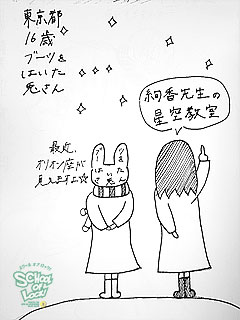 東京都
16歳
ブーツを
はいた
兎さん
絢香先生の
星空教室
最近、
オリオン座が
見えますよ☆
ブーツを
はいた
兎さん
SCHOOL
OF
LOCK!